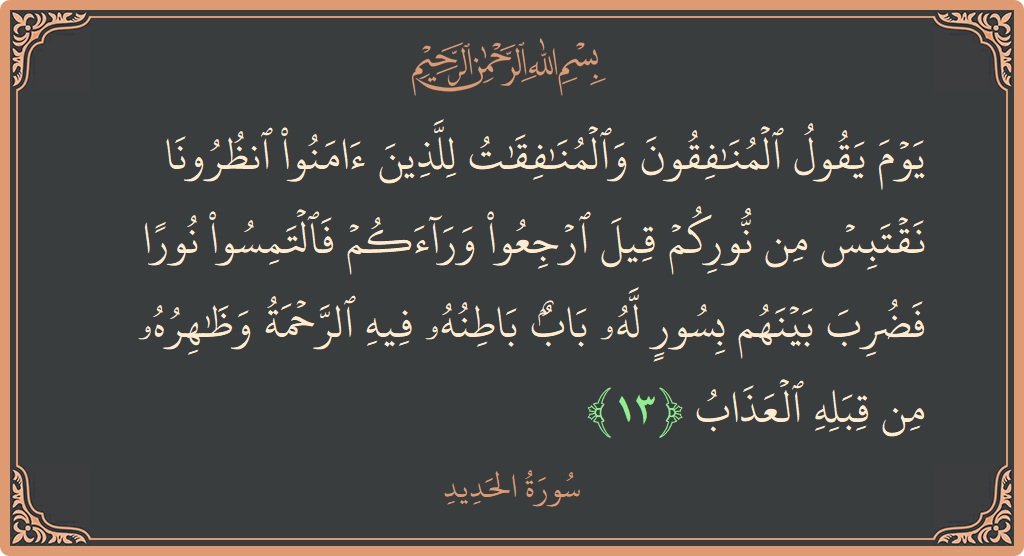 بِسْمِ اللَّهِ الرَّحْمَٰنِ الرَّحِيمِ
يَوْمَ يَقُولُ ٱلْمُنَٰفِقُونَ وَٱلْمُنَٰفِقَٰتُ لِلَّذِينَ ءَامَنُوا۟ ٱنظُرُونَا
نَقْتَبِسْ مِن نُّورِكُمْ قِيلَ ٱرْجِعُوا۟ وَرَآءَكُمْ فَٱلْتَمِسُوا۟ نُورًا
فَضُرِبَ بَيْنَهُم بِسُورٍ لَّهُۥ بَابٌۢ بَاطِنُهُۥ فِيهِ ٱلرَّحْمَةُ وَظَٰهِرُهُۥ
مِن قِبَلِهِ ٱلْعَذَابُ ﴿١٣﴾
سُورَةُ الحَدِيدِ